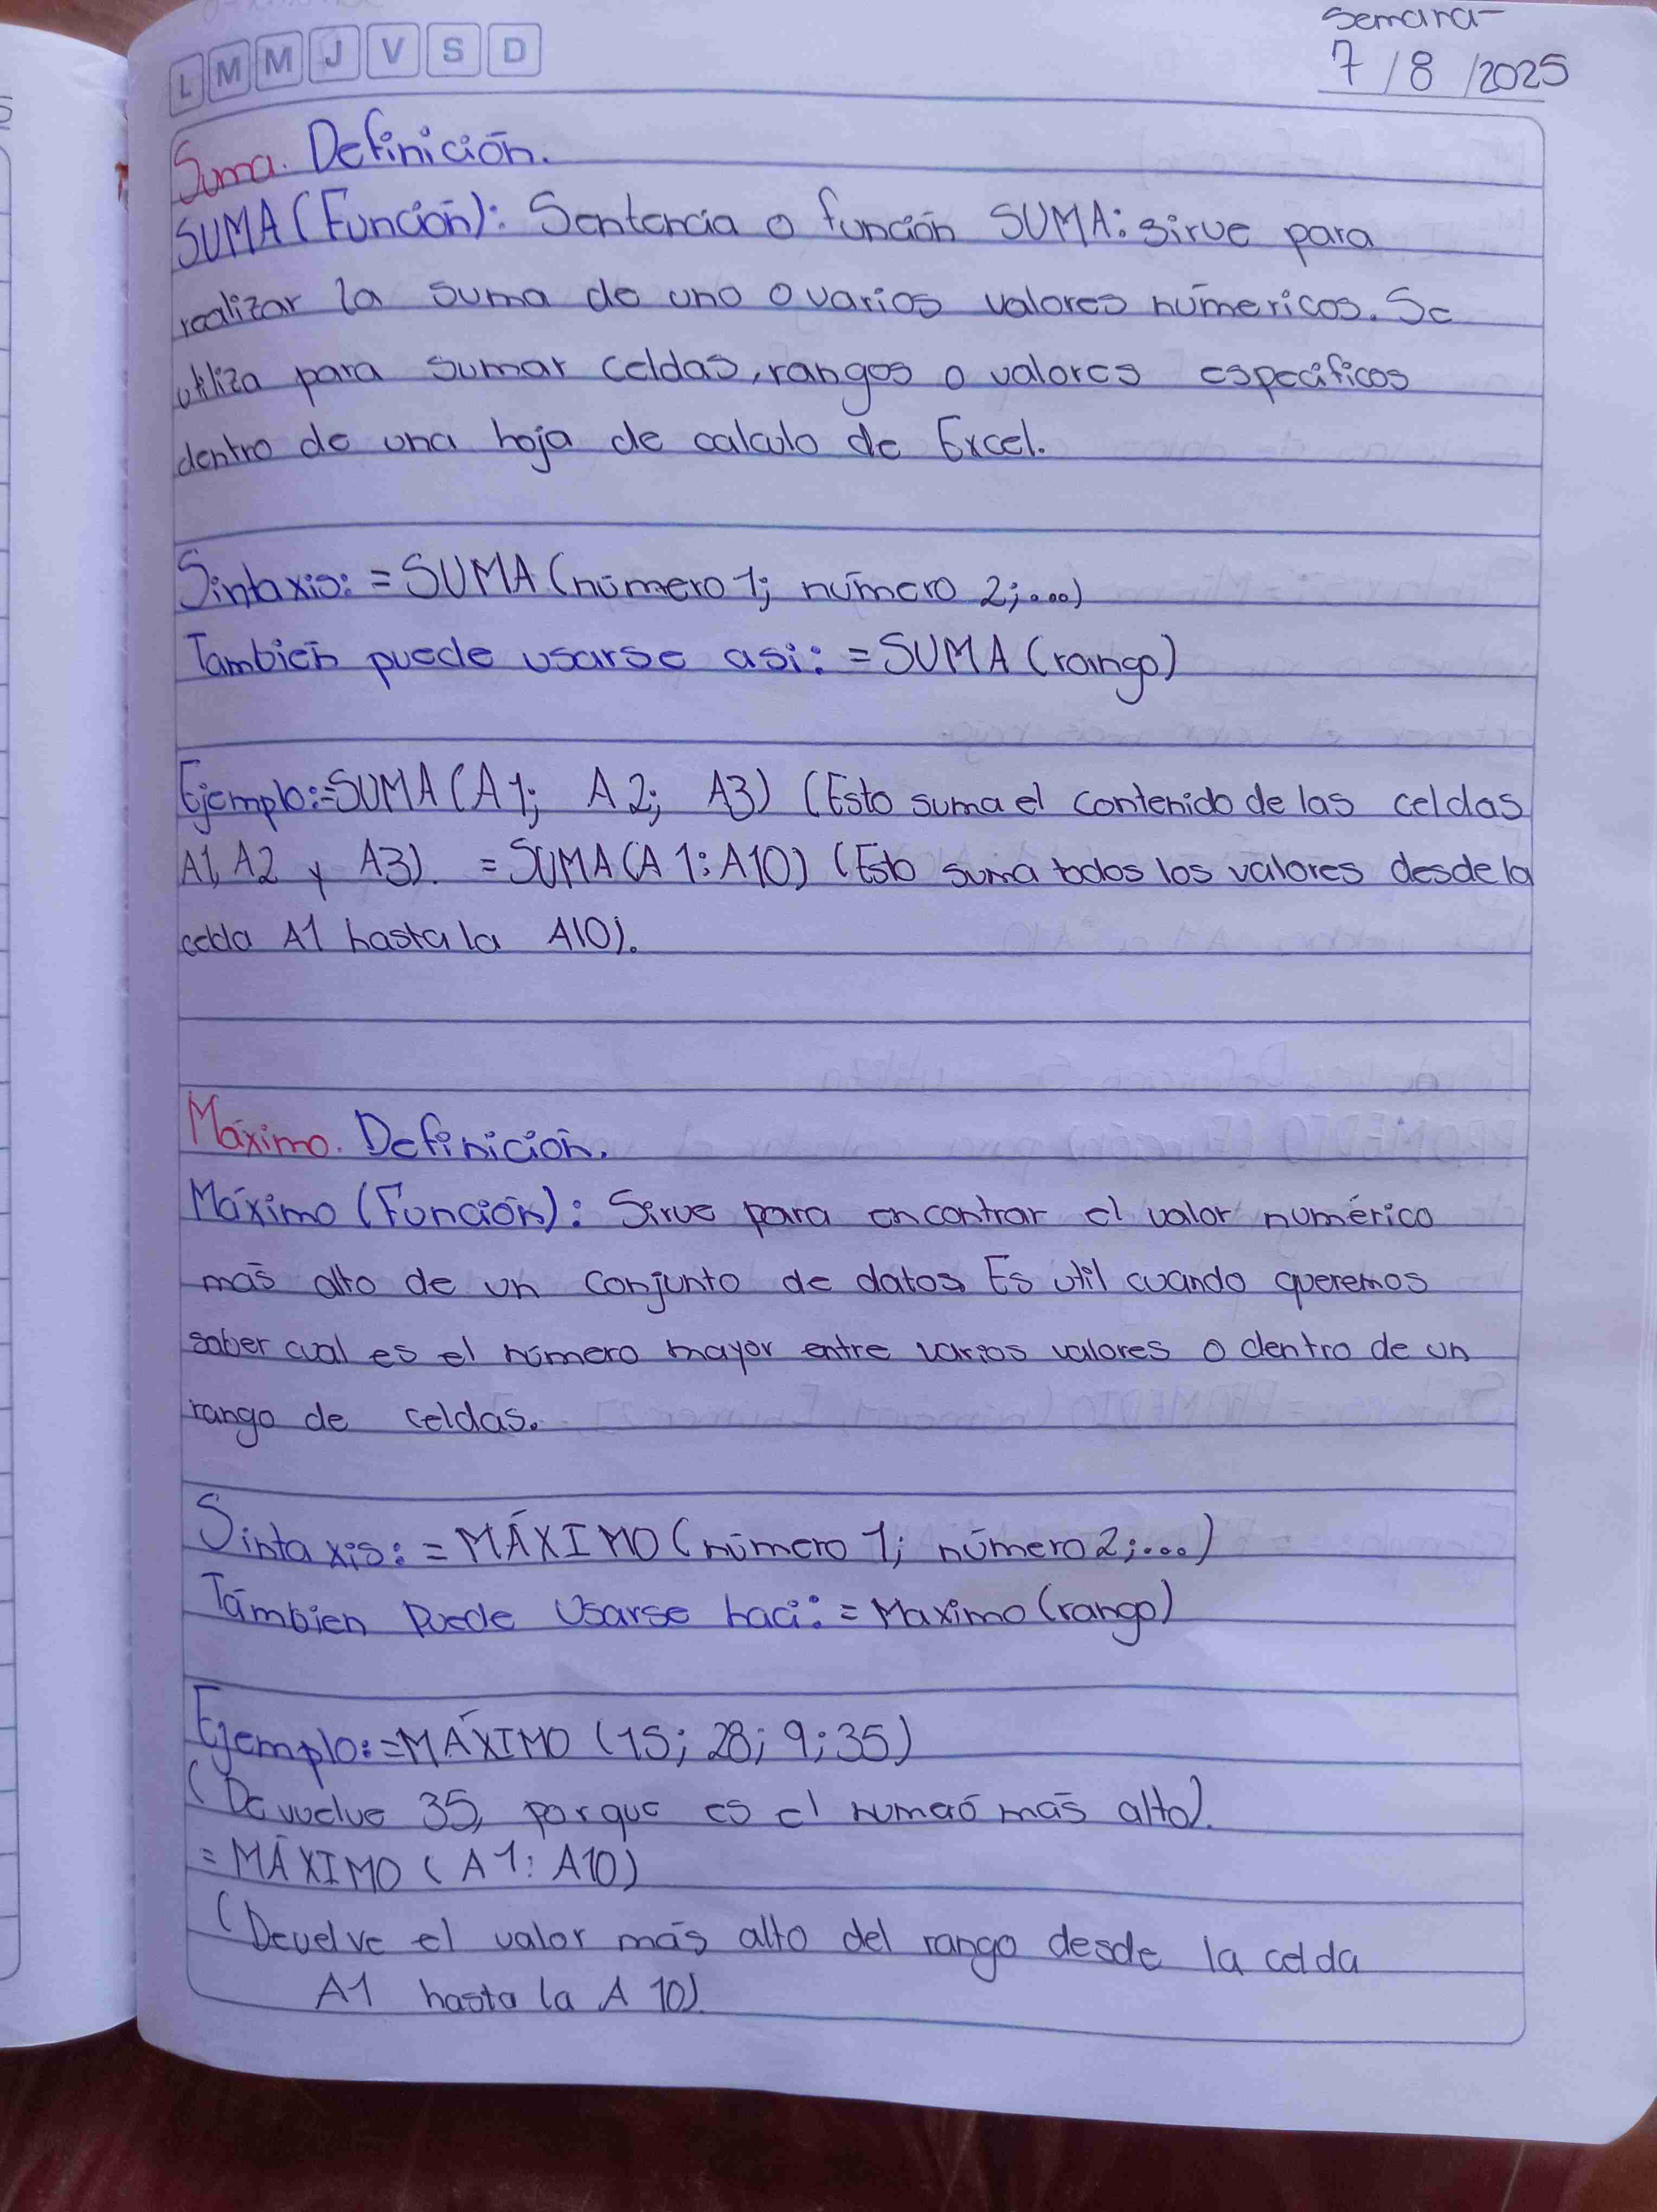 Semana-
L M M J V S D
7 / 8 / 2025
Suma. Definición.
SUMA (Función): Sentencia o función SUMA: sirve para
realizar la suma de uno o varios valores númericos. Se
utiliza para sumar celdas, rangos o valores especificos
dentro de una hoja de calculo de Excel.
Sintaxis: =SUMA (número 1; número 2;...)
Tambień puede usarse asi: =SUMA (rango)
Ejemplo:=SUMA (A1; A2; A3) (Esto suma el contenido de las celdas
A1, A2 y A3). =SUMA (A1:A10) (Esto suma todos los valores desde la
celda A1 hasta la A10).
Máximo. Definición.
Máximo (Función): Sirve para encontrar el valor numérico
más alto de un conjunto de datos. Es util cuando queremos
saber cual es el número mayor entre varios valores o dentro de un
rango de celdas.
Sintaxis: =MÁXIMO (número 1; número 2;...)
Támbien puede usarse haci: =Maximo (rango)
Ejemplo:=MÁXIMO (15; 28; 9; 35)
(Devuelve 35, porque es el numeró más alto).
=MÁXIMO (A1:A10)
(Develve el valor más alto del rango desde la celda
A1 hasta la A10).